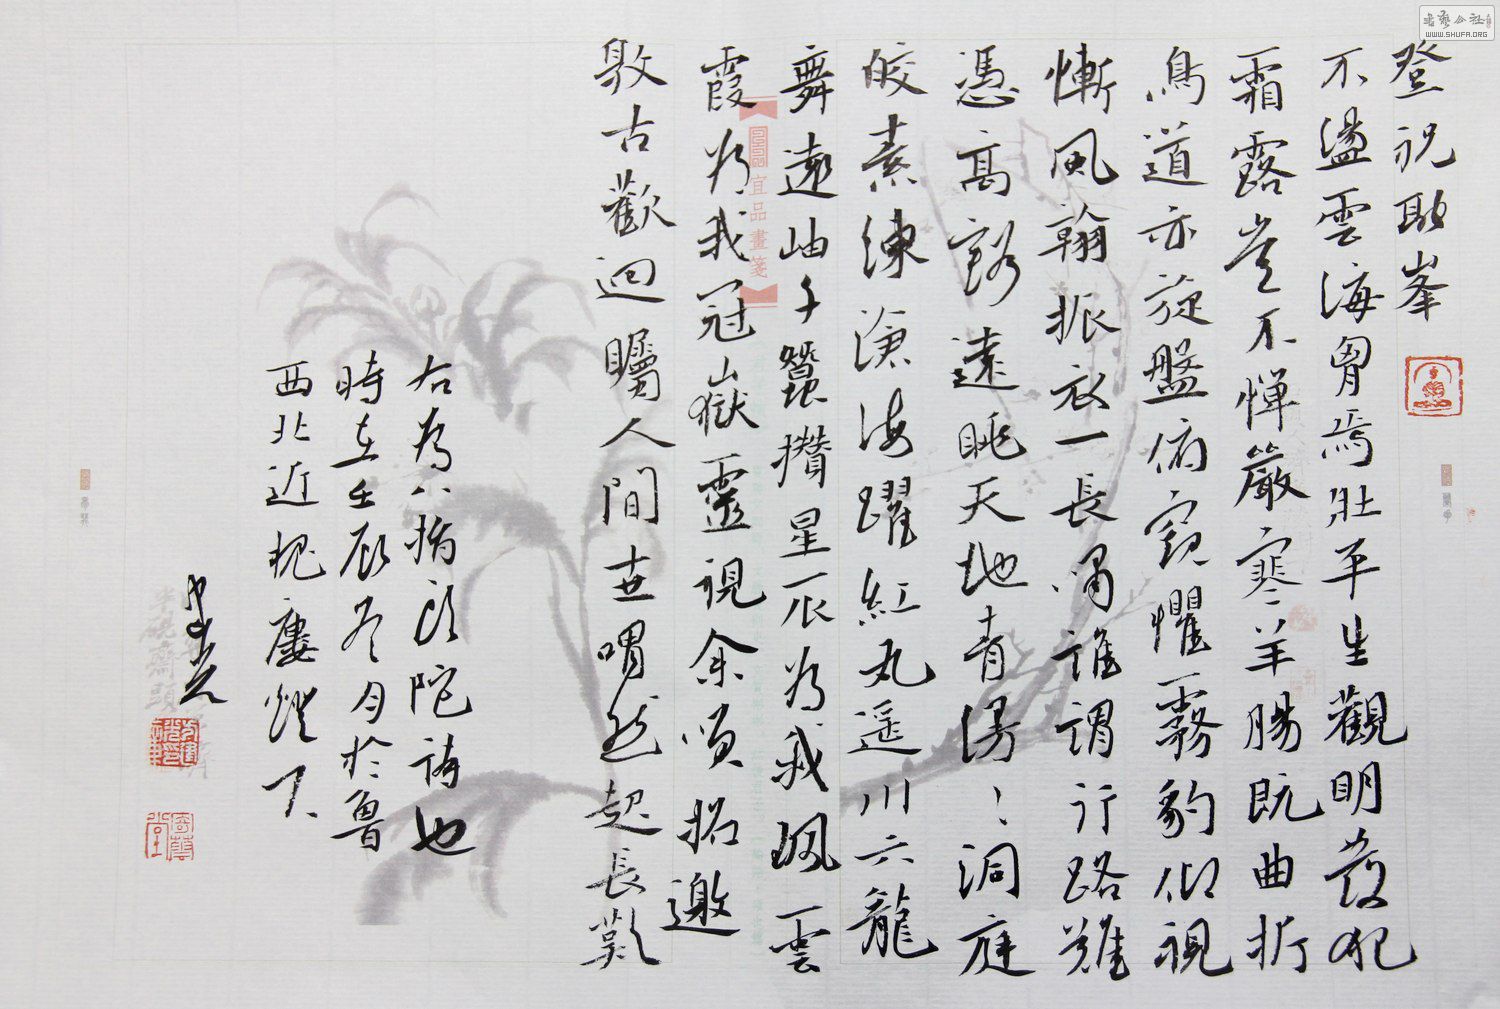 登祝融峯
不盪雲海胷焉壯平生觀明發犯
霜露豈不憚嚴寒羊腸既曲折
鳥道亦旋盤俯窺懼霧豹仰視
慚風翰振衣一長嘯誰謂行路難
憑高豁遠眺天地青漫〻洞庭
皎素練滄海躍紅丸遥川六龍
舞遠岫千蠶攢星辰為我珮雲
霞為我冠嶽靈視余笑招邀
敦古歡迴矚人間世喟然起長歎
右為八指頭陀詩也
時在壬辰冬月於魯
西北近槐廬燈下
宜品畫箋
WWW.SHUFA.ORG